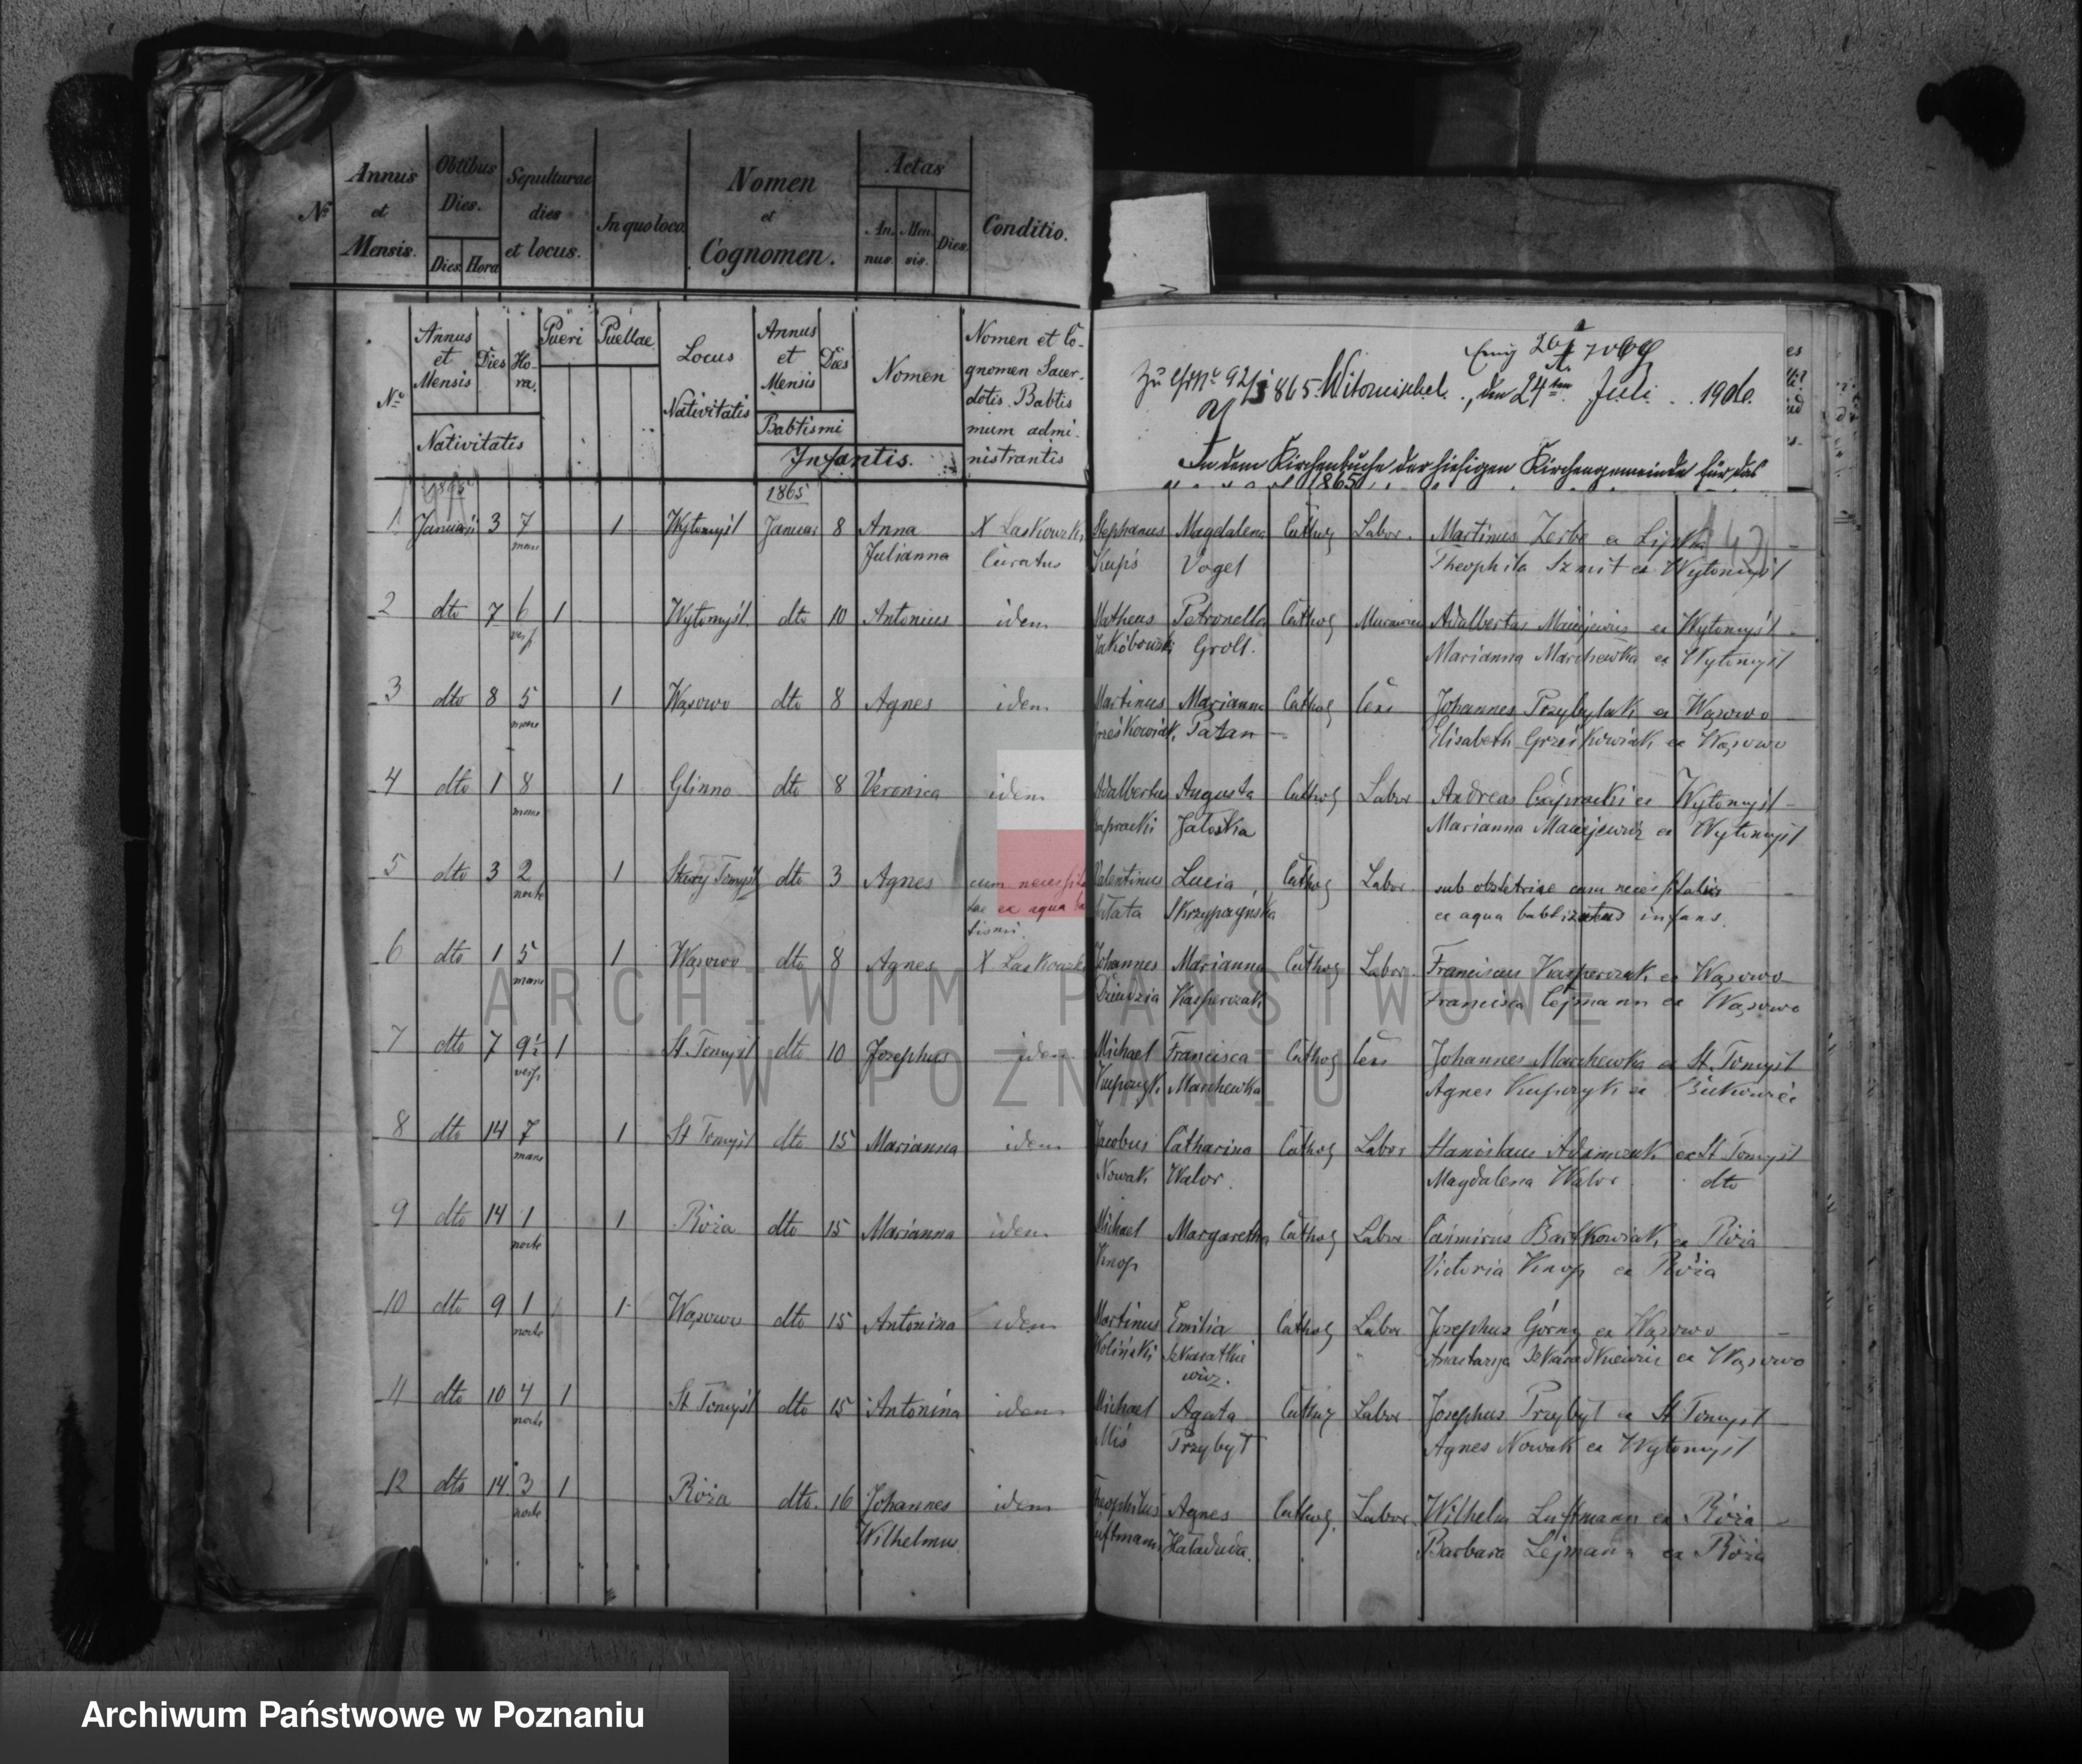 Nº Annus et Mensis. Obtibus Dies. Dies. Hora Sepulturae dies et locus. In quo loco. Nomen et Cognomen. Aetas Annus. Mensis. Dies. Conditio.
Nº Annus et Mensis Dies Hora. Nativitatis Pueri Puellae Locus Nativitatis Annus et Mensis Dies Babtismi Nomen Infantis. Nomen et Cognomen Sacerdotis Babtismum administrantis
Witomischel, den 24ten Juli 1906.
In dem Kirchenbuche der hiesigen Kirchengemeinde für das
1865
1865 1865
1 Januarii 3 7 mane 1 Wytomyśl Januar 8 Anna X Laskowski Stephanus Magdalena Cathog Labor. Martinus Zerbe ex
Julianna Curatus Kupś Vogel Theophila Szmit ex Wytomyśl
2 dto 7 6 vesp 1 Wytomyśl dto 10 Antonius idem Matheus Petronella Cathog Adalbertus Maciejewicz ex Wytomyśl
Jakóbowski Groll. Marianna Marchewka ex Wytomyśl
3 dto 8 5 mane 1 Wąsowo dto 8 Agnes idem Martinus Marianna Cathog Johannes Przybylak ex Wąsowo
Grześkowiak Tatan Elisabeth Grześkowiak ex Wąsowo
4 dto 1 8 mane 1 Glinno dto 8 Veronica idem Adalbertus Augusta Cathog Labor Andreas ex Wytomyśl
Marianna Maciejewicz ex Wytomyśl
5 dto 3 2 nocte 1 Stary Tomyśl dto 3 Agnes cum necessita Valentinus Lucia Cathog Labor sub obstetrice cum necessitatis
tae ex aqua ba Skrzypczyńska ex aqua babtizatus infans.
tismi.
6 dto 1 5 mane 1 Wąsowo dto 8 Agnes X Laskowski Johannes Marianna Cathog Labor Franciscus Kasperczak ex Wąsowo
Kasperczak Francisca Lejmann ex Wąsowo
7 dto 7 9½ vesp. 1 St. Tomyśl dto 10 Josephus idem Michael Francisca Cathog Johannes Marchewka ex St. Tomyśl
Kupczyk Marchewka Agnes Kupczyk ex
8 dto 14 7 mane 1 St Tomyśl dto 15 Marianna idem Jacobus Catharina Cathog Labor Stanislaus Adamczak ex St Tomyśl
Nowak Walor. Magdalena Walor dto
9 dto 14 1 nocte 1 Róża dto 15 Marianna idem Michael Margaretha Cathog Labor Casimirus Bartkowiak ex Róża
Knop Victoria Knop ex Róża
10 dto 9 1 nocte 1 Wąsowo dto 15 Antonina idem Martinus Emilia Cathog Labor Josephus Górny ex Wąsowo
Woliński Szkaratkie Anastazya ex Wąsowo
wicz.
11 dto 10 4 nocte 1 St Tomyśl dto 15 Antonina idem Michael Agata Cathog Labor Josephus Przybył ex St Tomyśl
Miś Przybył Agnes Nowak ex Wytomyśl
12 dto 14 3 nocte 1 Róża dto. 16 Johannes idem Theophilus Agnes Cathog. Labor. Wilhelm Luftmann ex Róża
Wilhelmus. Luftmann Barbara Lejmann ex Róża
ARCHIWUM PAŃSTWOWE
W POZNANIU
Archiwum Państwowe w Poznaniu